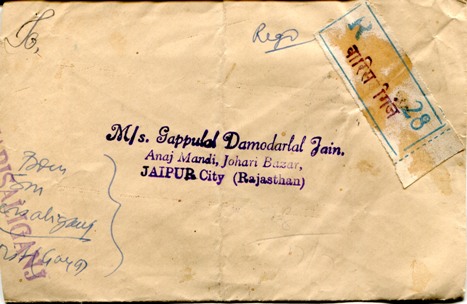 To,
Regd
R
वारिस गंज
28
M/s. Gappulal Damodarlal Jain.
Anaj Mandi, Johari Bazar,
JAIPUR City (Rajasthan)
From